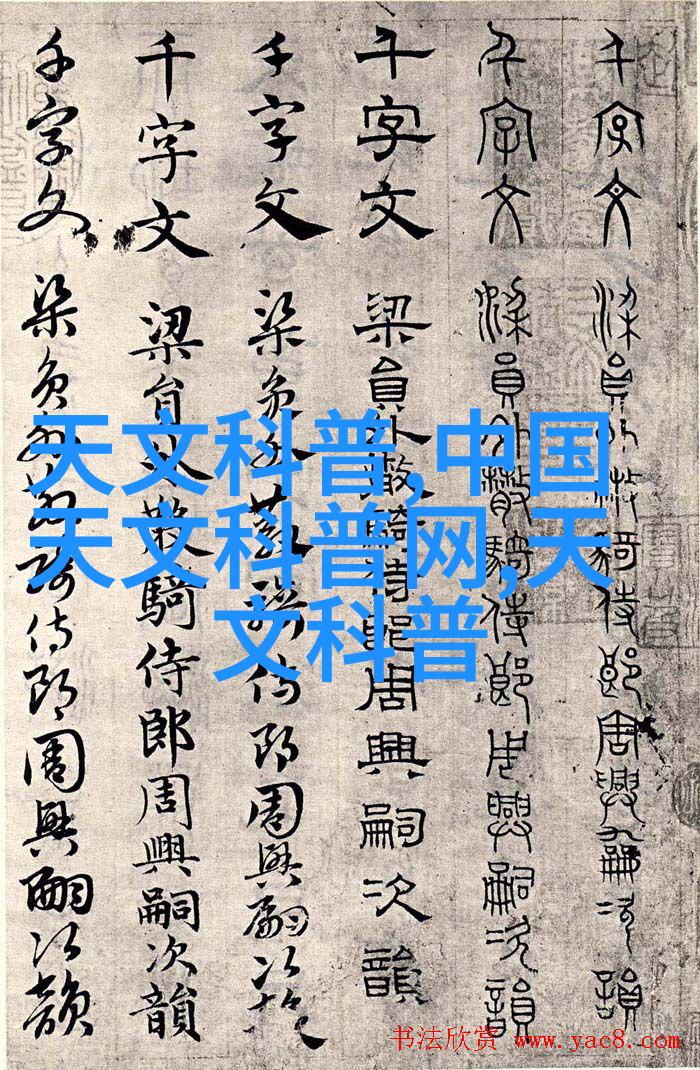 千字文 梁員外散騎侍郎周興嗣次韻
千字文 梁員外散騎侍郎周興嗣次韻
千字文 梁員外散騎侍郎周興嗣次韻
千字文 梁員外散騎侍郎周興嗣次韻
千字文 梁員外散騎侍郎周興嗣次韻
千字文 梁員外散騎侍郎周興嗣次韻
天文科普,中国
天文科普网,天
文科普
书法欣赏 www.yac8.com